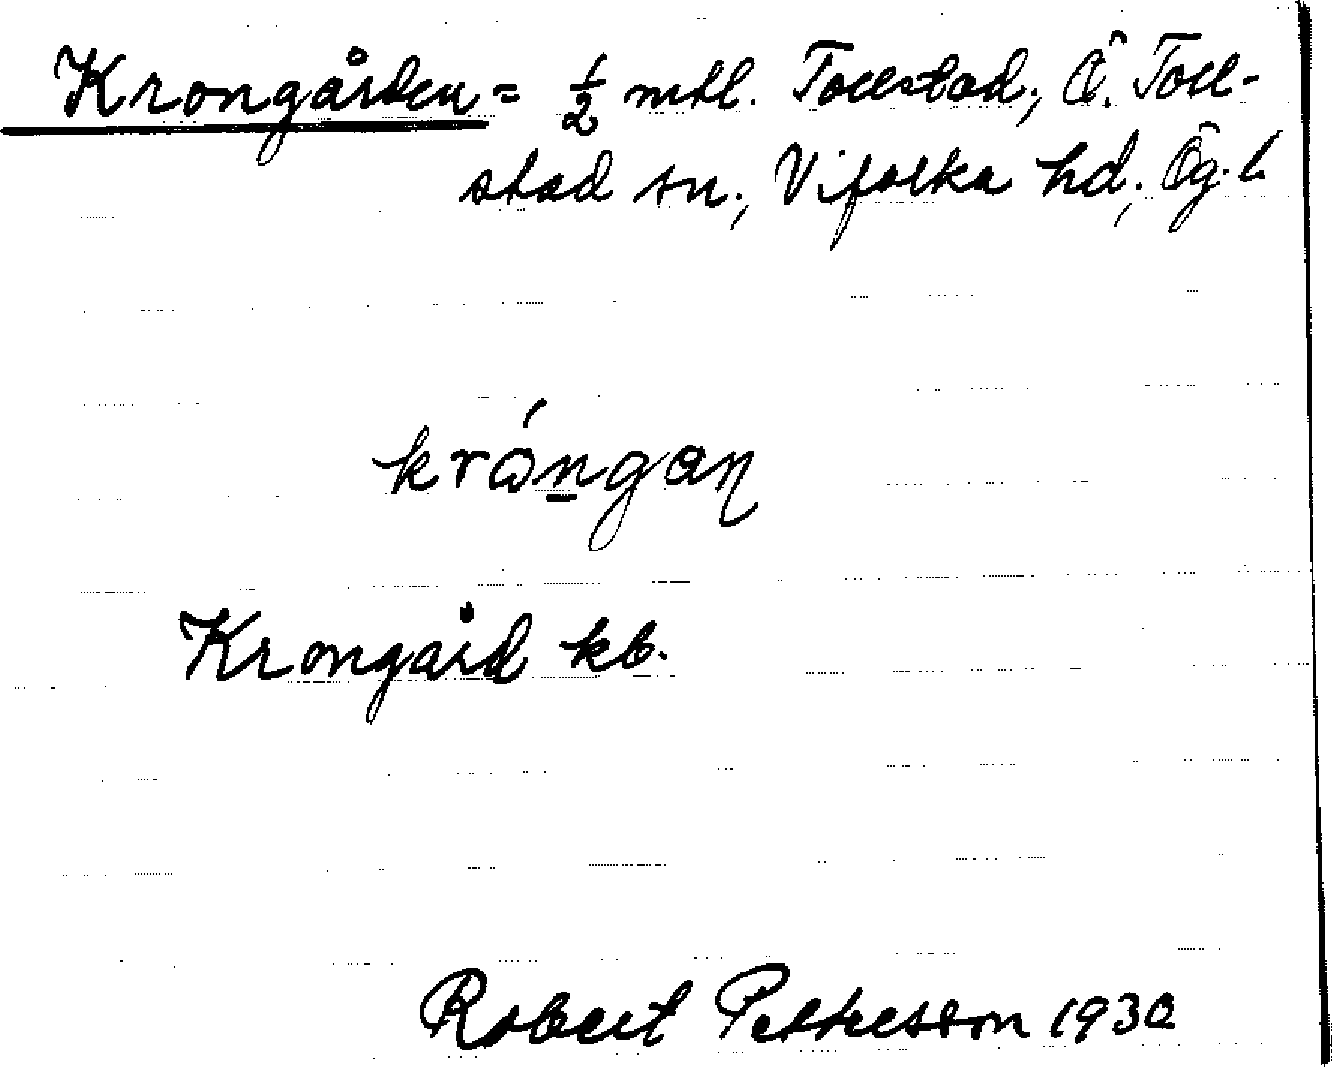 Krongården = ½ mtl. Tollstad, Ö. Toll-
stad sn., Vifolka hd, Ög. l.
krǻngan
Krongård kb.
Robert Pettersson 1930